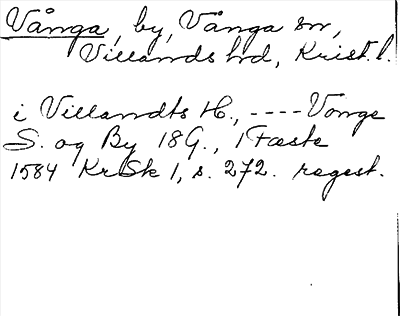 Vånga, by, Vånga sn,
Villands hd, Krist. l.
i Villandts H., ---- Vonge
S. og By 18 G., 1 Fæste
1584 KrSk 1, s. 272. regest.